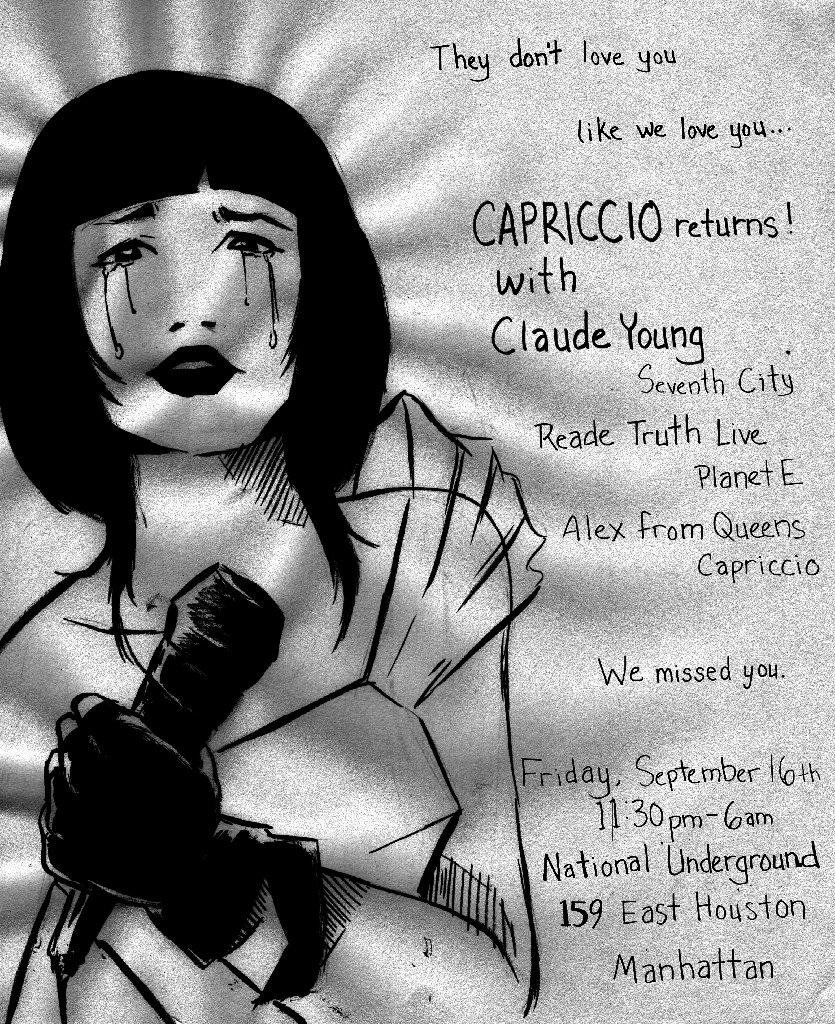 They don't love you
like we love you...
CAPRICCIO returns!
with
Claude Young
Seventh City
Reade Truth Live
Planet E
Alex from Queens
Capriccio
We missed you.
Friday, September 16th
11:30pm-6am
National Underground
159 East Houston
Manhattan